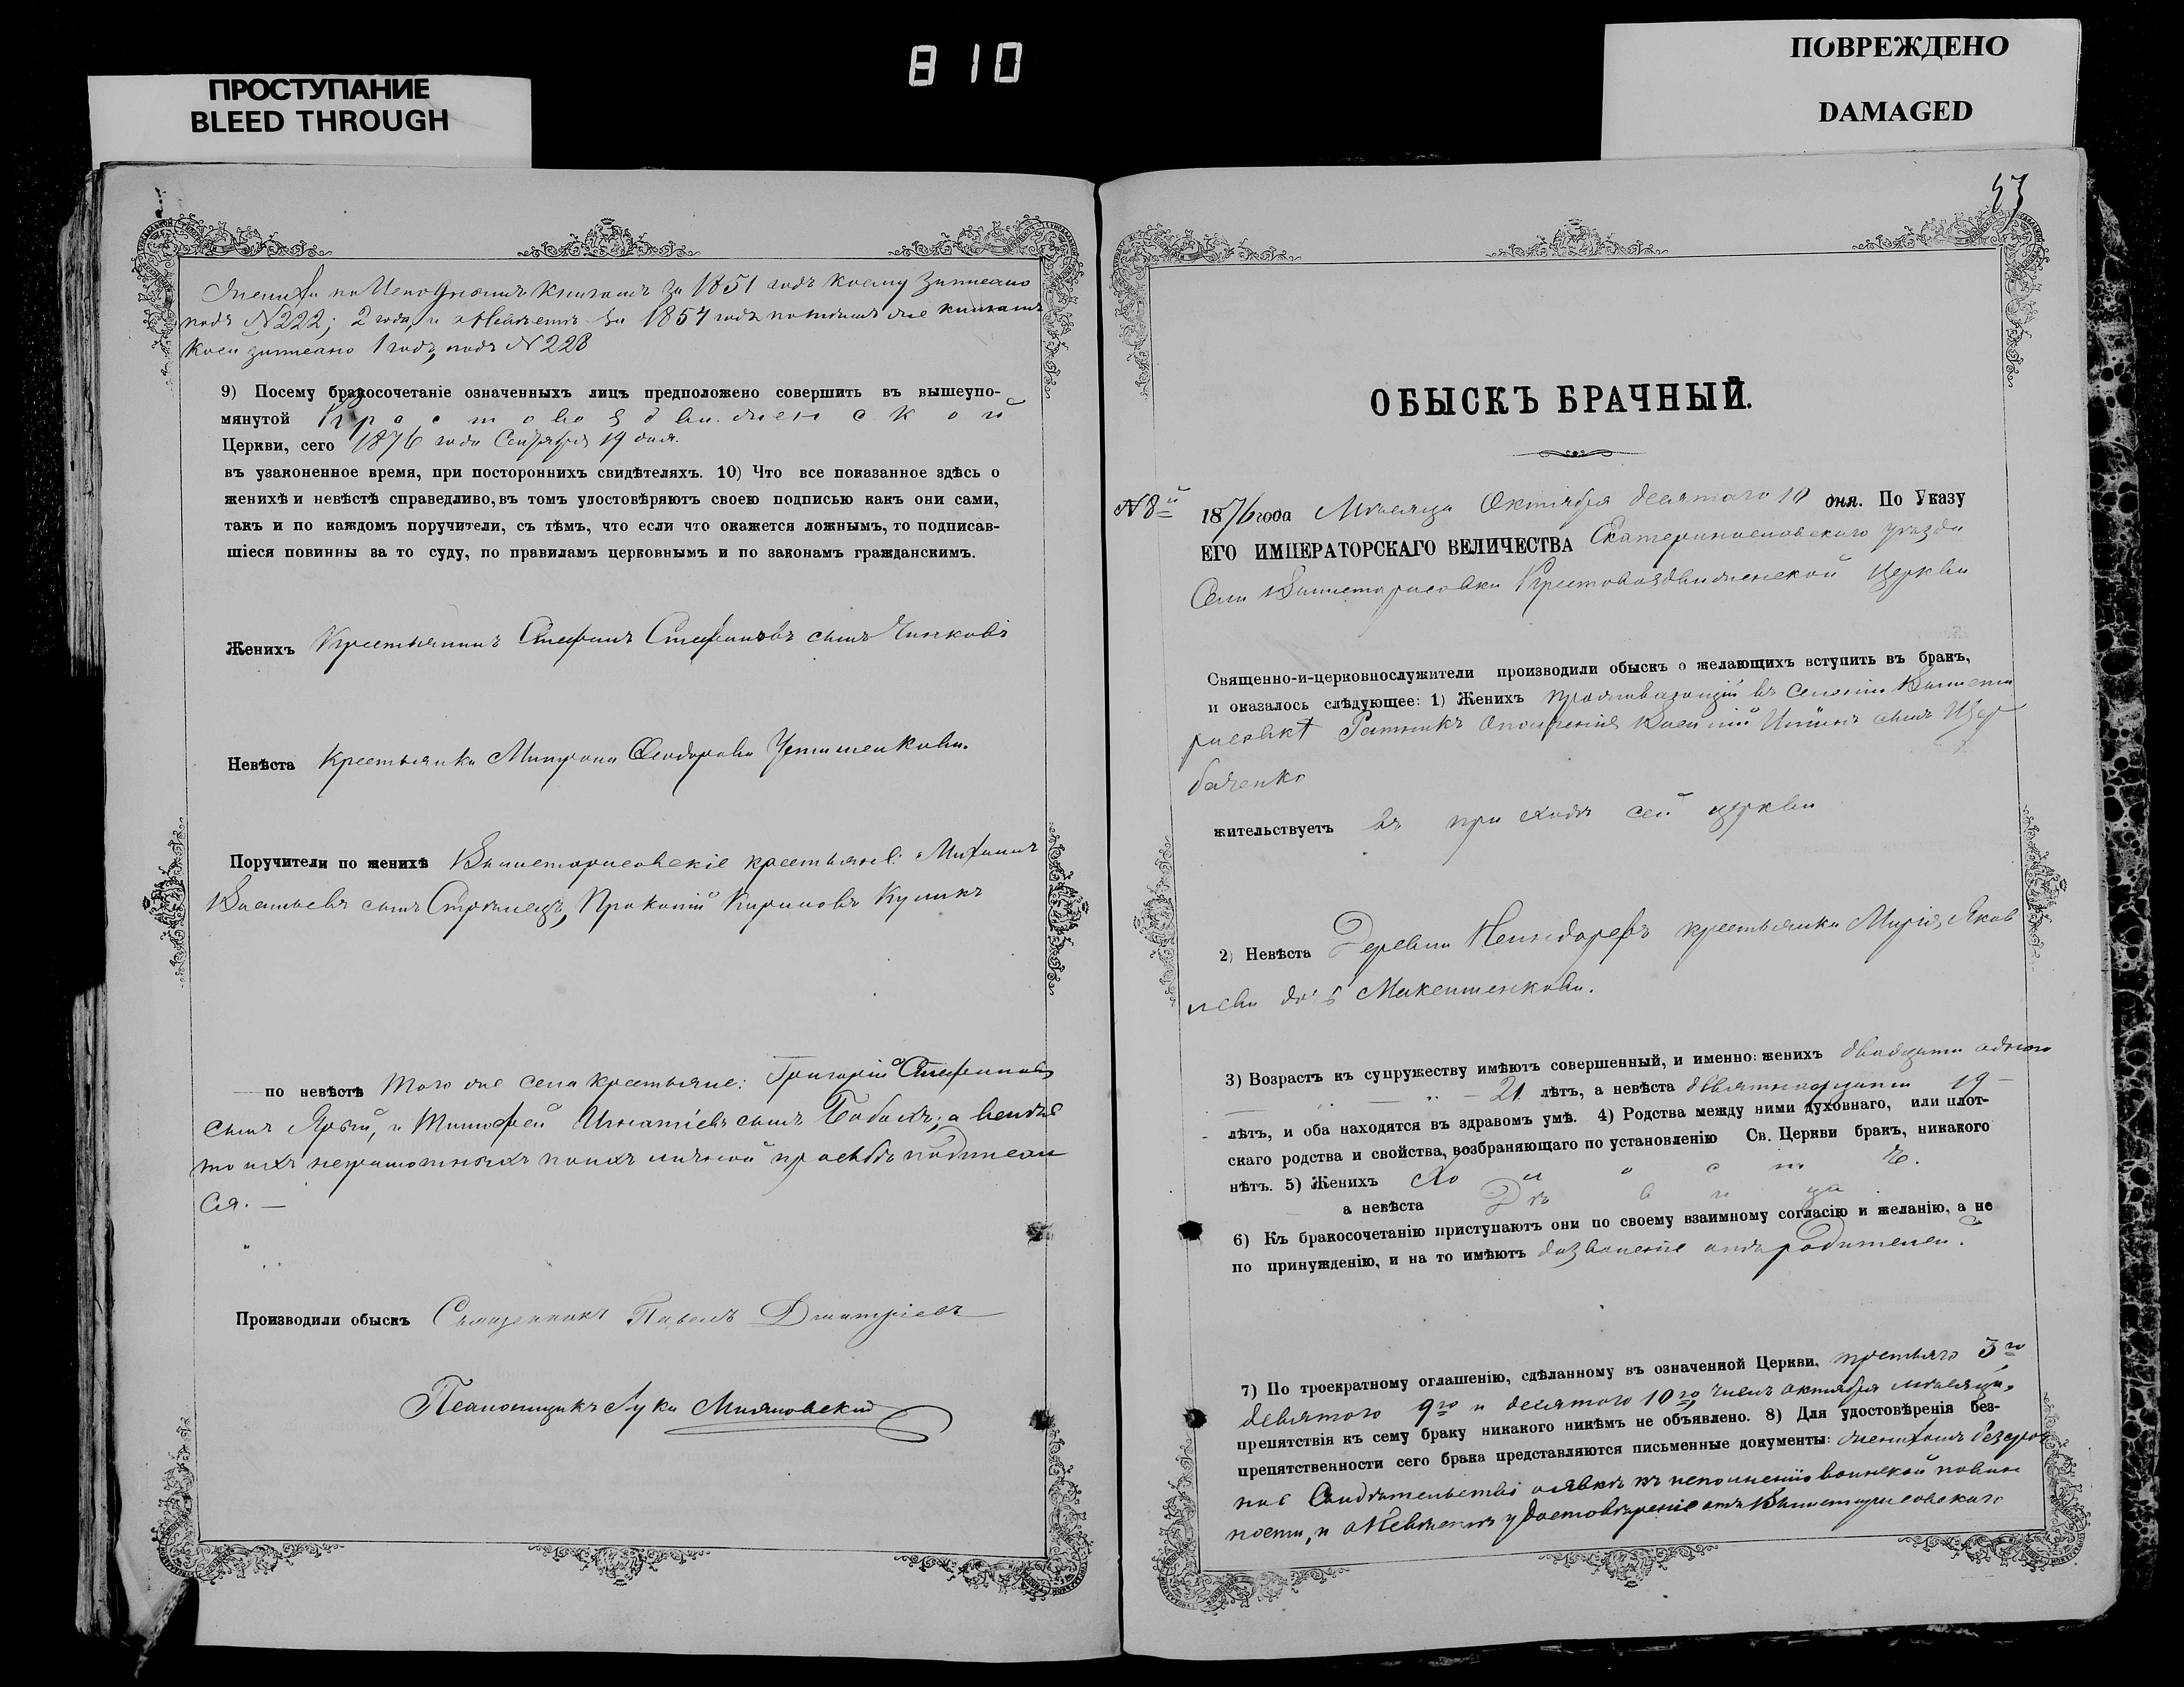 810
ПРОСТУПАНИЕ
BLEED THROUGH
ПОВРЕЖДЕНО
DAMAGED
жениха по Исповѣднымъ книгамъ за 1851 годъ коему записано
подъ №222; 2 года, и о Невѣстѣ за 1857 годъ по тѣмъ же книгамъ
коей записано 1 годъ, подъ №228
9) Посему бракосочетаніе означенныхъ лицъ предположено совершить въ вышеупо-
мянутой Крестовоздвиженской
Церкви, сего 1876 года Сентября 19 дня.
въ узаконенное время, при постороннихъ свидѣтеляхъ. 10) Что все показанное здѣсь о
женихѣ и невѣстѣ справедливо, въ томъ удостовѣряютъ своею подписью какъ они сами,
такъ и по каждомъ поручители, съ тѣмъ, что если что окажется ложнымъ, то подписав-
шіеся повинны за то суду, по правиламъ церковнымъ и по законамъ гражданскимъ.
Женихъ Крестьянинъ Стефанъ Стефановъ сынъ
Невѣста Крестьянка Феодорова
Поручители по женихѣ крестьяне:
сынъ Прокопій Кириловъ Куликъ
по невѣстѣ того же села крестьяне: Григорій Стефановъ
сынъ Ярый, и Тимофей Игнатіевъ сынъ а вмѣс
то ихъ неграмотныхъ по ихъ личной просьбѣ подписал
ся. —
Производили обыскъ Священникъ Павелъ Дмитріевъ
Псаломщикъ Лука
ОБЫСКЪ БРАЧНЫЙ.
№8й 1876 года Мѣсяца Октября десятаго 10 дня. По Указу
ЕГО ИМПЕРАТОРСКАГО ВЕЛИЧЕСТВА Екатеринославскаго уѣзда
Села Крестовоздвиженской Церкви
Священно-и-церковнослужители производили обыскъ о желающихъ вступить въ бракъ,
и оказалось слѣдующее: 1) Женихъ проживающій въ селеніи
Ратникъ Ополченія сынъ Щер
баченко
жительствуетъ въ приходѣ сей церкви
2) Невѣста Деревни крестьянка Марія Яков
лева дочь
3) Возрастъ къ супружеству имѣютъ совершенный, и именно: женихъ двадцати одного
21 лѣтъ, а невѣста девятнадцати 19 —
лѣтъ, и оба находятся въ здравомъ умѣ. 4) Родства между ними духовнаго, или плот-
скаго родства и свойства, возбраняющаго по установленію Св. Церкви бракъ, никакого
нѣтъ. 5) Женихъ Холостъ.
а невѣста Дѣвица
6) Къ бракосочетанію приступаютъ они по своему взаимному согласію и желанію, а не
по принужденію, и на то имѣютъ дозволеніе отъ родителей.
7) По троекратному оглашенію, сдѣланному въ означенной Церкви, третьяго 3го
девятого 9го и десятого 10го числъ октября мѣсяца,
препятствія къ сему браку никакого никѣмъ не объявлено. 8) Для удостовѣренія без-
препятственности сего брака представляются письменные документы: женихомъ безсроч
ное Свидѣтельство о явкѣ къ исполненію воинской повин
ности, и о Невѣстѣ удостовѣреніе отъ